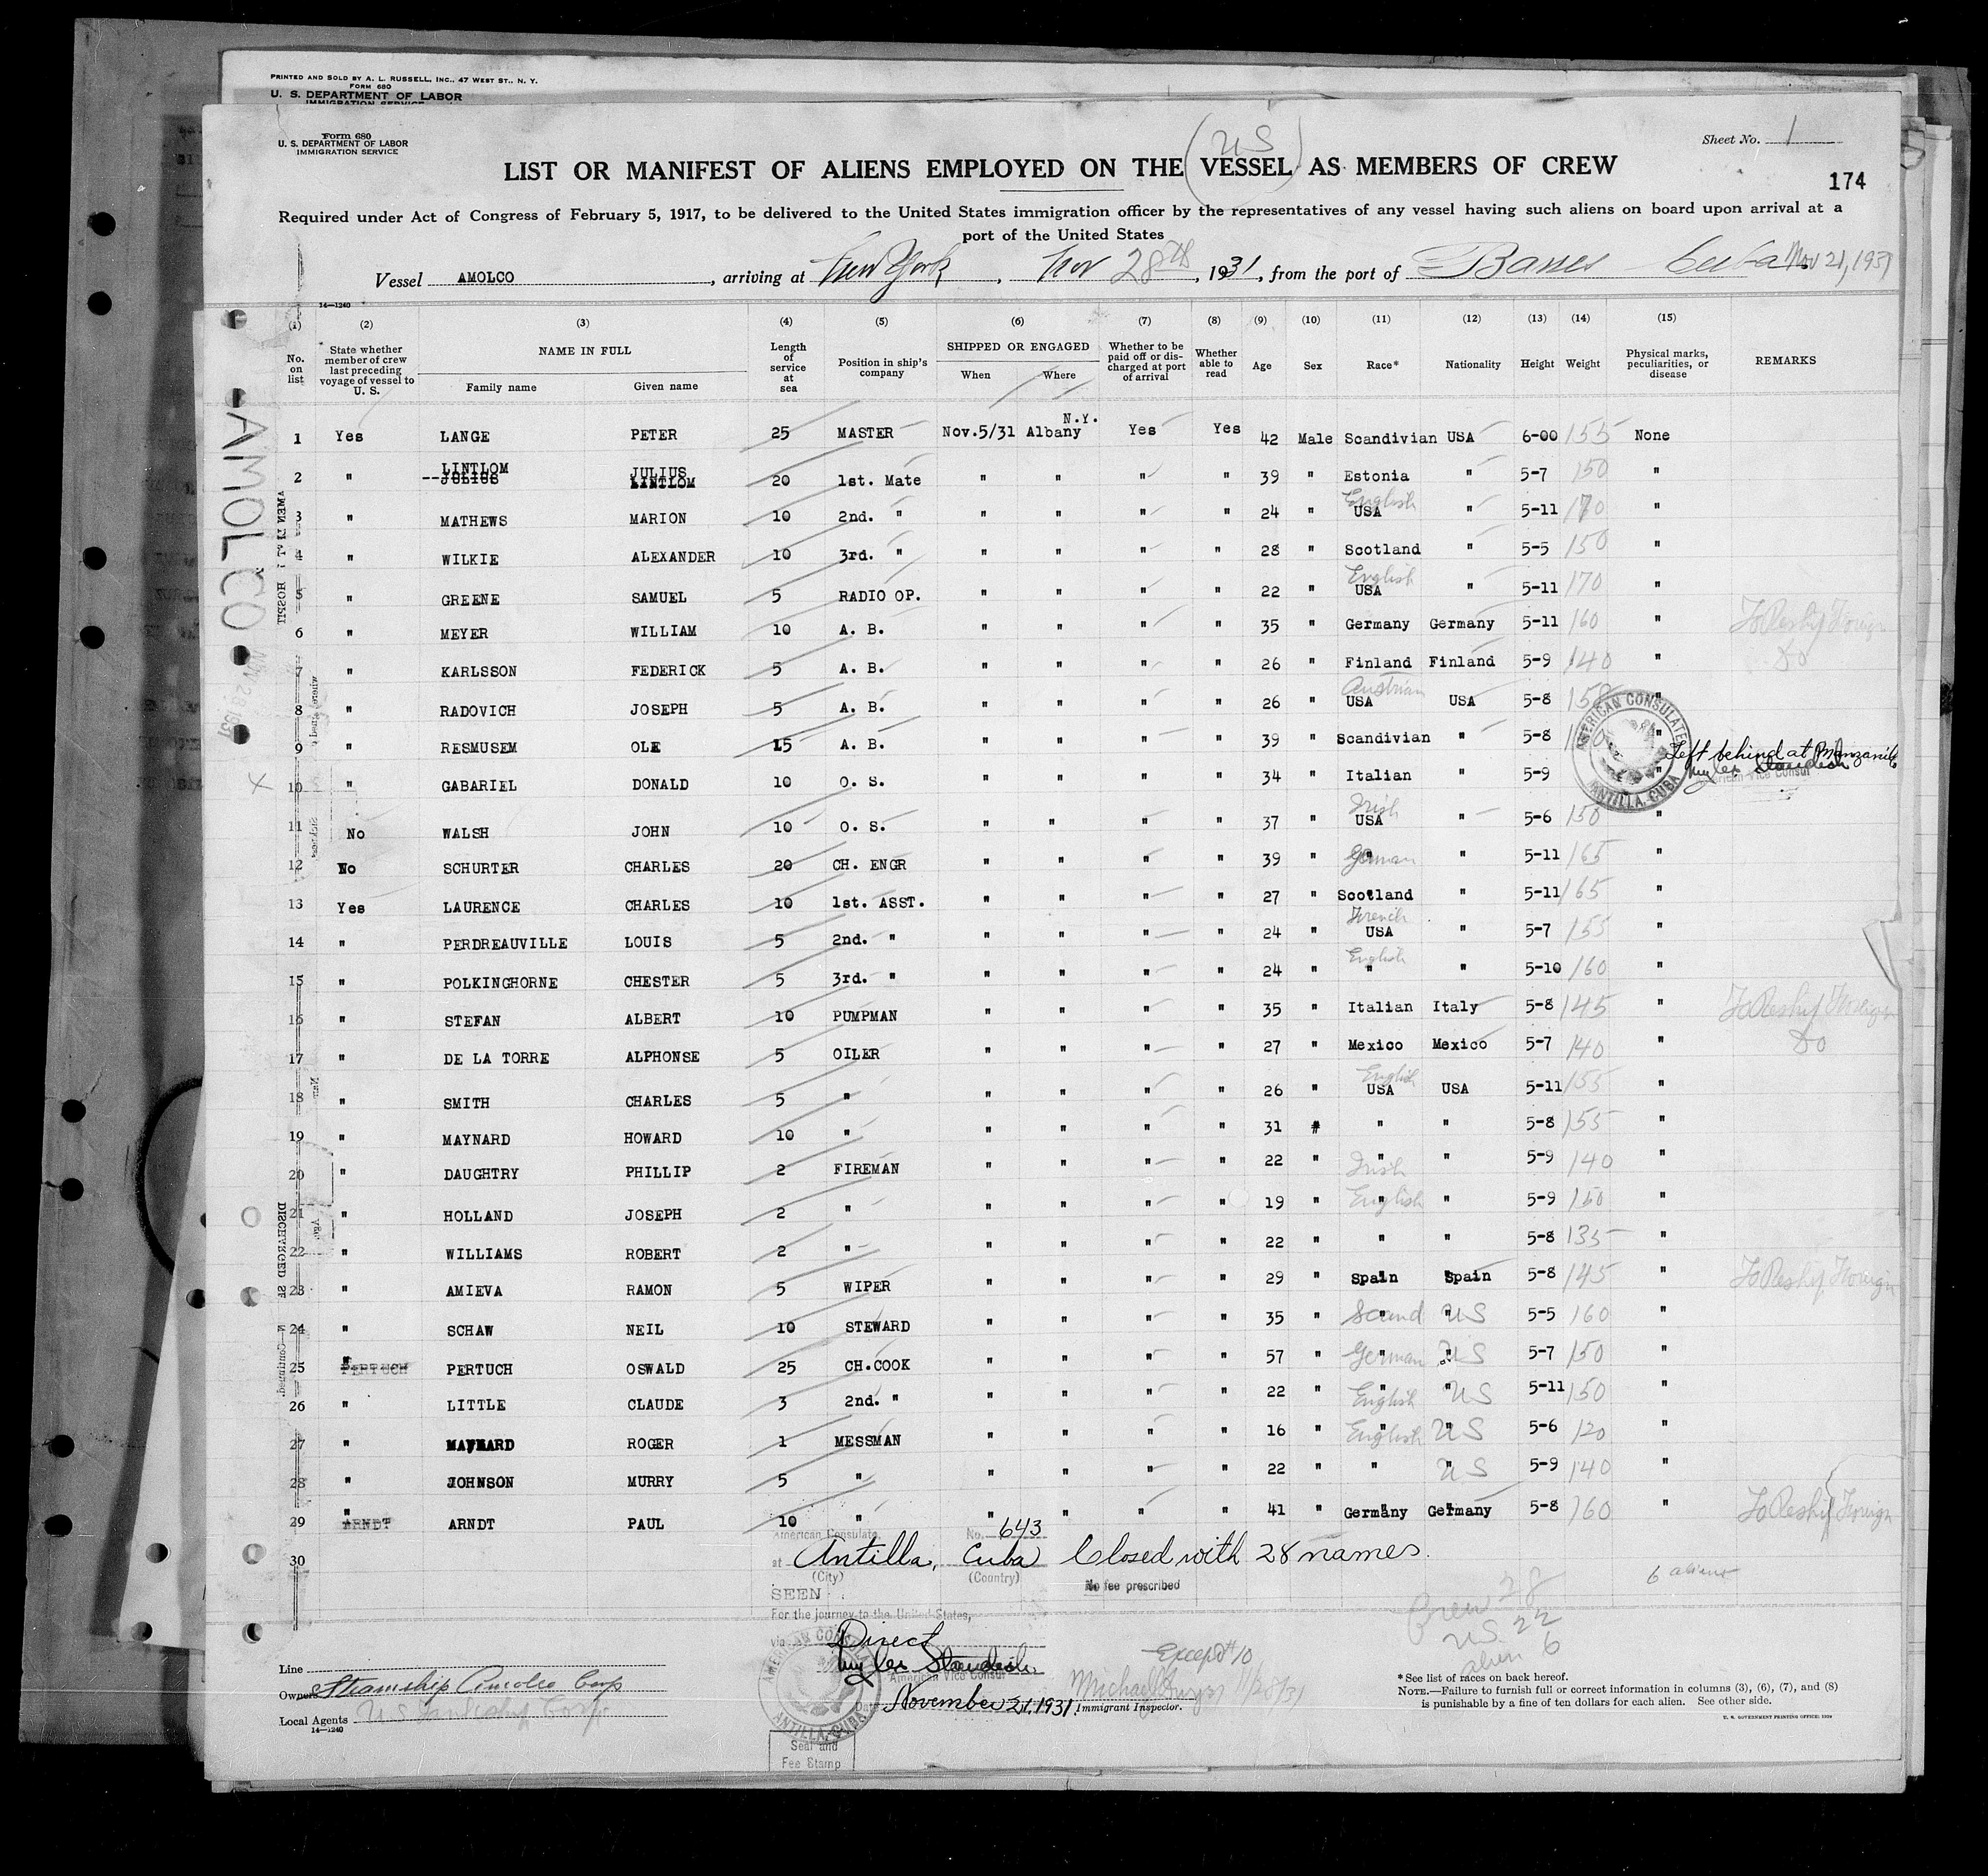 PRINTED AND SOLD BY A. L. RUSSELL, INC., 47 WEST ST., N. Y.
FORM 680
U. S. DEPARTMENT OF LABOR
IMMIGRATION SERVICE
Form 680
U. S. DEPARTMENT OF LABOR
IMMIGRATION SERVICE
Sheet No. 1
(US)
LIST OR MANIFEST OF ALIENS EMPLOYED ON THE VESSEL AS MEMBERS OF CREW
174
Required under Act of Congress of February 5, 1917, to be delivered to the United States immigration officer by the representatives of any vessel having such aliens on board upon arrival at a
port of the United States
Vessel AMOLCO, arriving at New York, Nov 28th, 1931, from the port of Banes Cuba Nov 21, 1931
14—1240
(1) (2) (3) (4) (5) (6) (7) (8) (9) (10) (11) (12) (13) (14) (15)
No. on list State whether member of crew last preceding voyage of vessel to U. S. NAME IN FULL Family name Given name Length of service at sea Position in ship's company SHIPPED OR ENGAGED When Where Whether to be paid off or discharged at port of arrival Whether able to read Age Sex Race* Nationality Height Weight Physical marks, peculiarities, or disease REMARKS
1 Yes LANGE PETER 25 MASTER Nov.5/31 Albany N.Y. Yes Yes 42 Male Scandivian USA 6-00 155 None
2 " LINTLOM JULIUS 20 1st. Mate " " " " 39 " Estonia " 5-7 150 "
3 " MATHEWS MARION 10 2nd. " " " " " 24 " USA English " 5-11 170 "
4 " WILKIE ALEXANDER 10 3rd. " " " " " 28 " Scotland " 5-5 150 "
5 " GREENE SAMUEL 5 RADIO OP. " " " " 22 " USA English " 5-11 170 "
6 " MEYER WILLIAM 10 A. B. " " " " 35 " Germany Germany 5-11 160 " To Reship Foreign
7 " KARLSSON FEDERICK 5 A. B. " " " " 26 " Finland Finland 5-9 140 " Do
8 " RADOVICH JOSEPH 5 A. B. " " " " 26 " USA Austrian USA 5-8 158 "
9 " RESMUSEM OLE 15 A. B. " " " " 39 " Scandivian " 5-8 "
10 " GABARIEL DONALD 10 O. S. " " " " 34 " Italian " 5-9 " Left behind at Manzanillo
Myles Standish
American Vice Consul
AMERICAN CONSULATE ANTILLA, CUBA
11 No WALSH JOHN 10 O. S. " " " " 37 " USA Irish " 5-6 150 "
12 No SCHURTER CHARLES 20 CH. ENGR " " " " 39 " German " 5-11 165 "
13 Yes LAURENCE CHARLES 10 1st. ASST. " " " " 27 " Scotland " 5-11 165 "
14 " PERDREAUVILLE LOUIS 5 2nd. " " " " " 24 " USA French " 5-7 155 "
15 " POLKINGHORNE CHESTER 5 3rd. " " " " " 24 " " English " 5-10 160 "
16 " STEFAN ALBERT 10 PUMPMAN " " " " 35 " Italian Italy 5-8 145 " To Reship Foreign
17 " DE LA TORRE ALPHONSE 5 OILER " " " " 27 " Mexico Mexico 5-7 140 " Do
18 " SMITH CHARLES 5 " " " " " 26 " USA English USA 5-11 155 "
19 " MAYNARD HOWARD 10 " " " " " 31 " " " 5-8 155 "
20 " DAUGHTRY PHILLIP 2 FIREMAN " " " " 22 " " Irish " 5-9 140 "
21 " HOLLAND JOSEPH 2 " " " " " 19 " " English " 5-9 150 "
22 " WILLIAMS ROBERT 2 " " " " " 22 " " " 5-8 135 "
23 " AMIEVA RAMON 5 WIPER " " " " 29 " Spain Spain 5-8 145 " To Reship Foreign
24 " SCHAW NEIL 10 STEWARD " " " " 35 " Scand US 5-5 160 "
25 " PERTUCH OSWALD 25 CH.COOK " " " " 57 " German US 5-7 150 "
26 " LITTLE CLAUDE 3 2nd. " " " " " 22 " English US 5-11 150 "
27 " MAYNARD ROGER 1 MESSMAN " " " " 16 " English US 5-6 120 "
28 " JOHNSON MURRY 5 " " " " " 22 " " US 5-9 140 "
29 " ARNDT PAUL 10 " " " " " 41 " Germany Germany 5-8 160 " To Reship Foreign
30
American Consulate, No. 643
at Antilla, Cuba Closed with 28 names.
(City) (Country) No fee prescribed
6 aliens
SEEN
For the journey to the United States,
via Direct
Myles Standish
American Vice Consul
Date November 21, 1931.
AMERICAN CONSULATE ANTILLA, CUBA
Seal and
Fee Stamp
Except #10
11/28/31
Immigrant Inspector.
Crew 28
US. 22
alien 6
Line
Owners Steamship Amolco Corp
Local Agents
14—1240
*See list of races on back hereof.
NOTE.—Failure to furnish full or correct information in columns (3), (6), (7), and (8)
is punishable by a fine of ten dollars for each alien. See other side.
U. S. GOVERNMENT PRINTING OFFICE: 1929
AMOLCO
NOV 28 1931